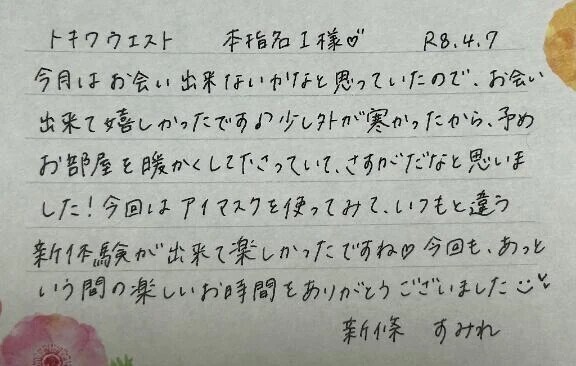 トキワウエスト 本指名I様♡ R8.4.7
今月はお会い出来ないかなと思っていたので、お会い
出来て嬉しかったです♪少し外が寒かったから、予め
お部屋を暖かくして下さっていて、さすがだなと思いま
した！今回はアイマスクを使ってみて、いつもと違う
新体験が出来て楽しかったですね♡今回も、あっと
いう間の楽しいお時間をありがとうございました
新條 すみれ